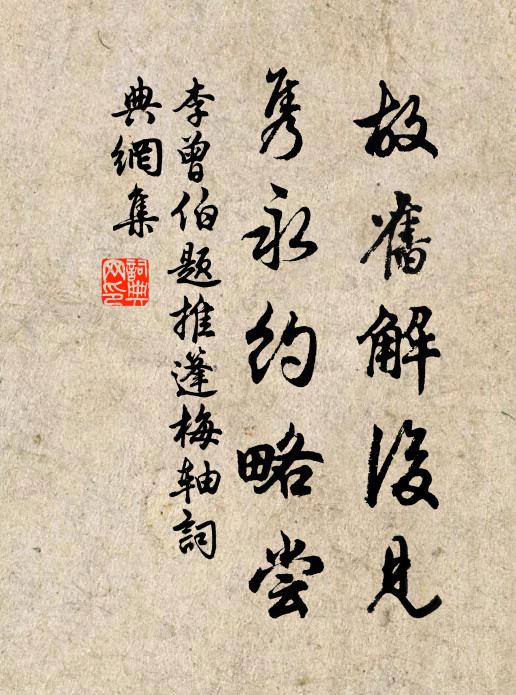 故舊解後見
隽永約略尝
李曾伯題推蓬梅轴詞
典網集
詞典
网印